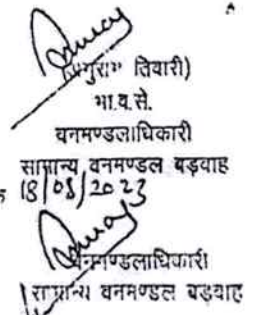 तिवारी)
भा.व.से.
वनमण्डलाधिकारी
सामान्य वनमण्डल बड़वाह
18/08/2023
वनमण्डलाधिकारी
सामान्य वनमण्डल बड़वाह